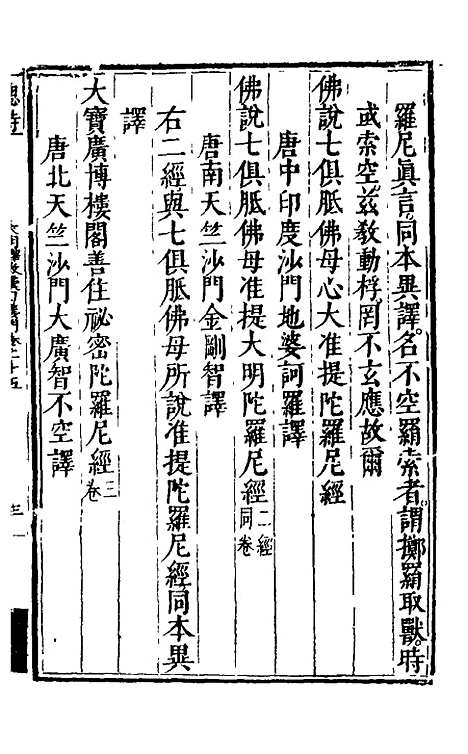 羅尼眞言同本異譯。名不空羂索者。謂擲羂取獸。時
或索空。兹教動桴。罔不玄應故爾
佛說七俱胝佛母心大准提陀羅尼經
唐中印度沙門地婆訶羅譯
佛說七俱胝佛母准提大明陀羅尼經二經同卷
唐南天竺沙門金剛智譯
右二經與七俱胝佛母所說准提陀羅尼經同本異
譯
大寶廣博樓閣善住祕密陀羅尼經三卷
唐北天竺沙門大廣智不空譯